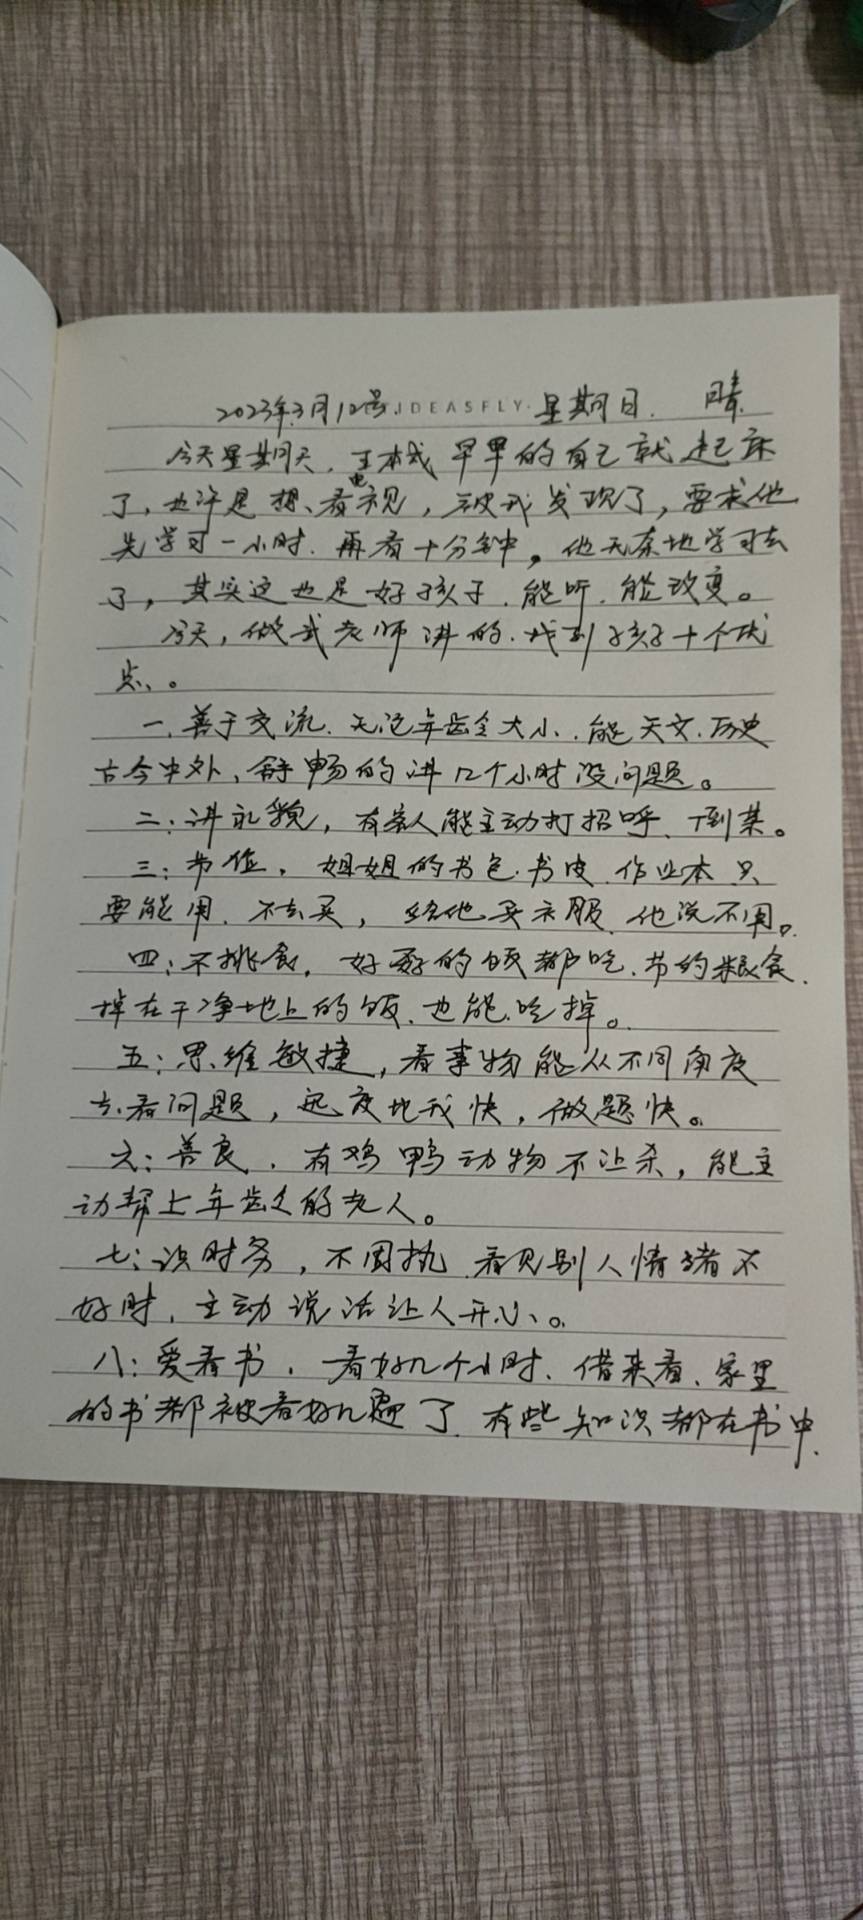 2023年3月12号 IDEASFLY 星期日. 晴
今天星期天，王本武早早的自己就起床
了，也许是想、看电视，被我发现了，要求他
先学习一小时.再看十分钟，他无奈地学习去
了，其实这也是好孩子.能听.能改变。
今天，做武老师讲的.找到孩子十个优
点、。
一.善于交流.无论年龄大小.能天文.历史
古今中外、舒畅的讲几个小时没问题。
二:讲礼貌，有客人能主动打招呼、倒茶。
三:节俭，姐姐的书包.书皮.作业本只
要能用.不去买，给他买衣服.他说不用。
四:不挑食，好歹的饭都吃.节约粮食.
掉在干净地上的饭.也能.吃掉。
五:思维敏捷，看事物能从不同角度
去看问题，速度比我快，做题快。
六:善良.有鸡鸭动物不让杀，能主
动帮上年龄的老人。
七:识时务，不固执.看见别人情绪不
好时.主动说话让人开心、。
八:爱看书.一看好几个小时.借来看.家里
的书都被看好几遍了.有些知识都在书中.